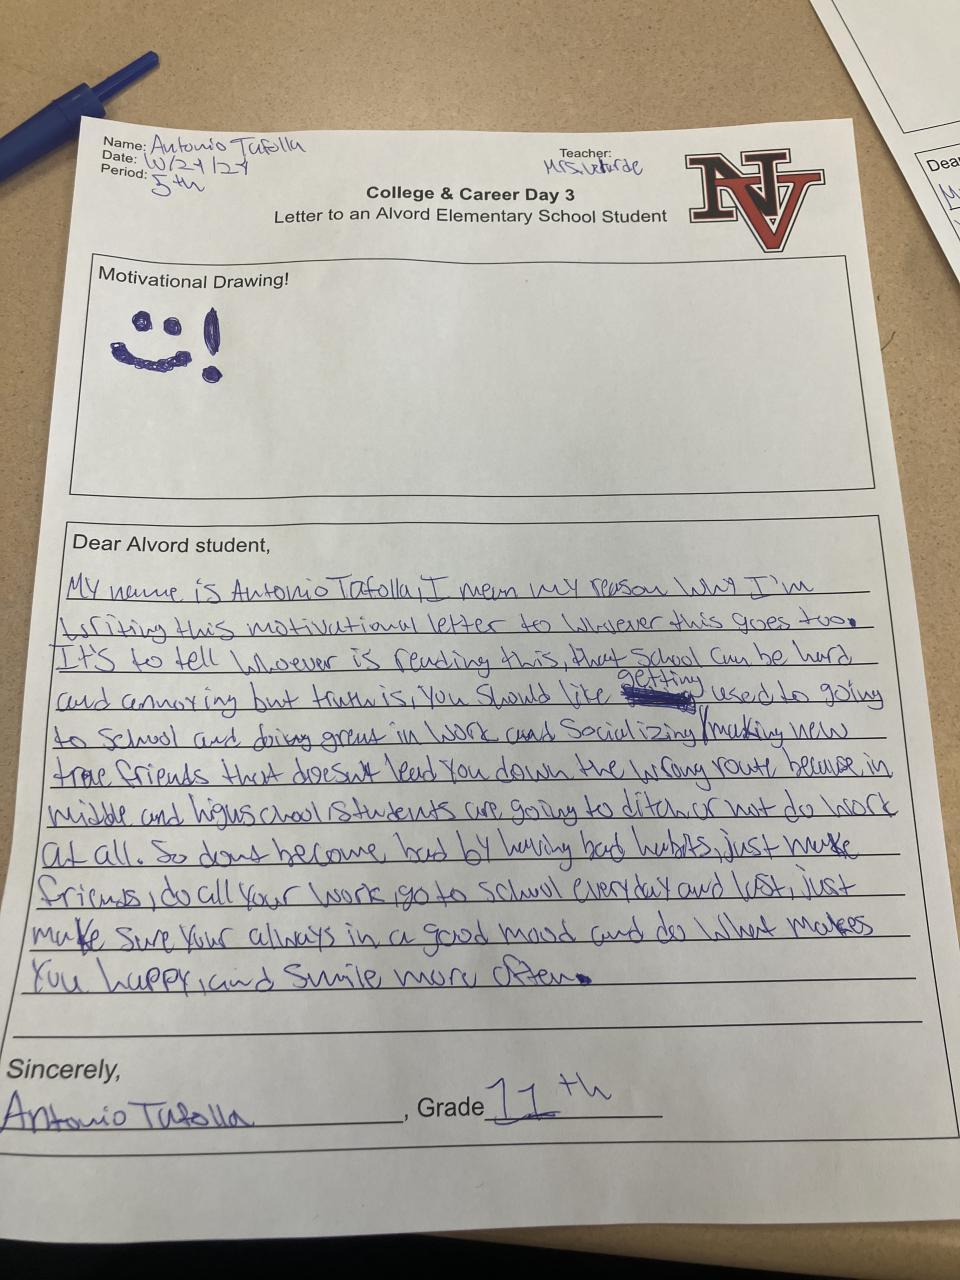 Name: Antonio Tafolla
Date: 10/24/24
Period: 5th
Teacher:
Mrs.
NV
College & Career Day 3
Letter to an Alvord Elementary School Student
Motivational Drawing!
Dear Alvord student,
My name is Antonio Tafolla, I mean my reason why I'm
writing this motivational letter to whoever this goes too.
It's to tell whoever is reading this, that school can be hard
and annoying but truth is, you should like getting used to going
to school and doing great in work and socializing/making new
true friends that doesn't lead you down the wrong route because in
middle and highschool students are going to ditch or not do work
at all. So dont become bad by having bad habits, just make
friends, do all your work, go to school everyday and last, just
make sure your allways in a good mood and do what makes
you happy, and smile more often.
Sincerely,
Antonio Tafolla, Grade 11th
Dear